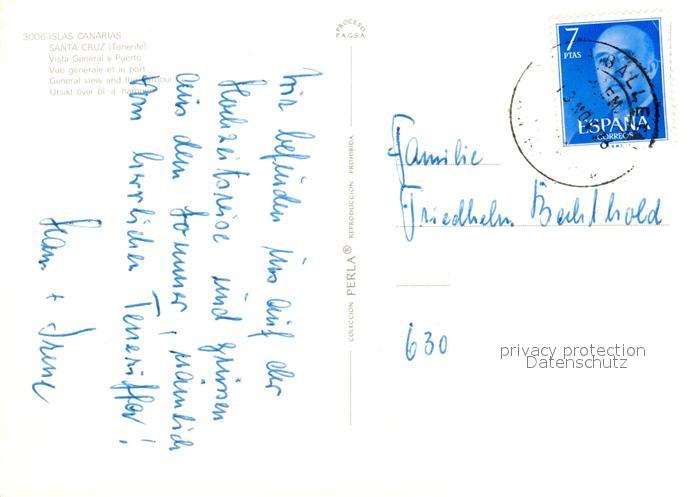 3006-ISLAS CANARIAS
SANTA CRUZ (Tenerife)
Vista General y Puerto
Vue générale et le port
General view and the harbour
Utsikt over bl a hamnen
PROCESO
P.A.G.S.A.
7
PTAS
ESPAÑA
CORREOS
Wir befinden uns auf der
Hochzeitsreise und grüssen
aus dem Sommer, nämlich
vom herrlichen Teneriffa!
Hans + Irene
COLECCION PERLA® REPRODUCCION PROHIBIDA
Familie
Friedhelm Bechthold
630
privacy protection
Datenschutz